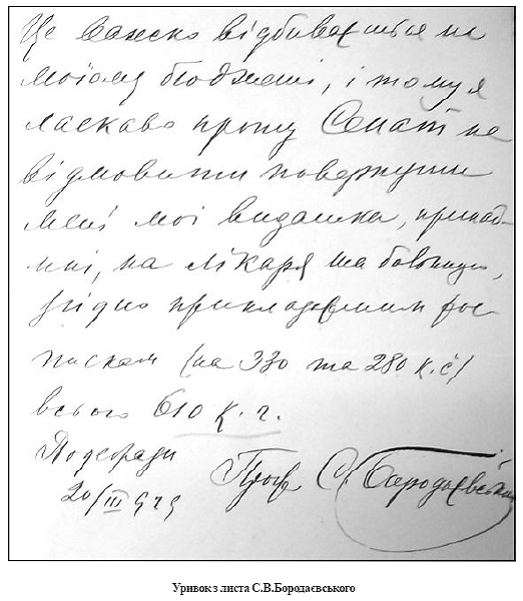 Це важко відбивається на
моїому бюджеті, і тому я
ласкаво прошу Сенат не
відмовити повернути
мені мої видатки, принайм-
ні, на лікаря та больницю,
згідно прикладеним рос-
пискам (на 330 та 280 к.č)
всього 610 к.ч.
Подєбради
20/III 929
Проф. С. Бородаєвський
Уривок з листа С.В.Бородаєвського